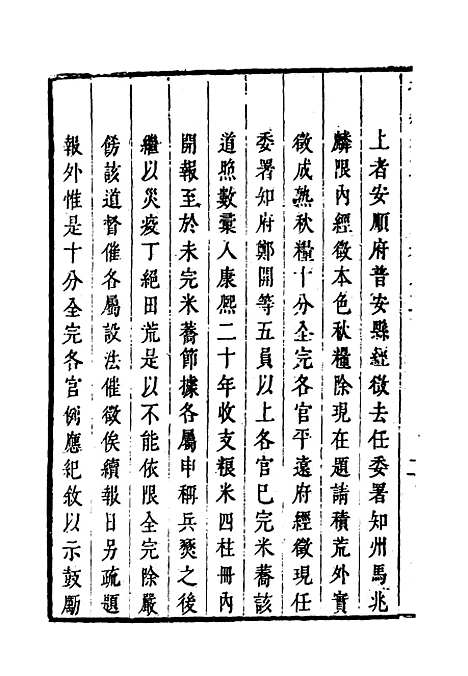 上者安順府普安縣經徵去任委署知州馬兆
麟限內經徵本色秋糧除現在題請積荒外實
徵成熟秋糧十分全完各官平遠府經徵現任
委署知府鄭開等五員以上各官已完米蕎該
道照數彙入康熙二十年收支粮米四柱冊內
開報至於未完米蕎節據各屬申稱兵燹之後
繼以災疫丁絕田荒是以不能依限全完除嚴
飭該道督催各屬設法催徵俟續報日另疏題
報外惟是十分全完各官例應紀敘以示鼓勵